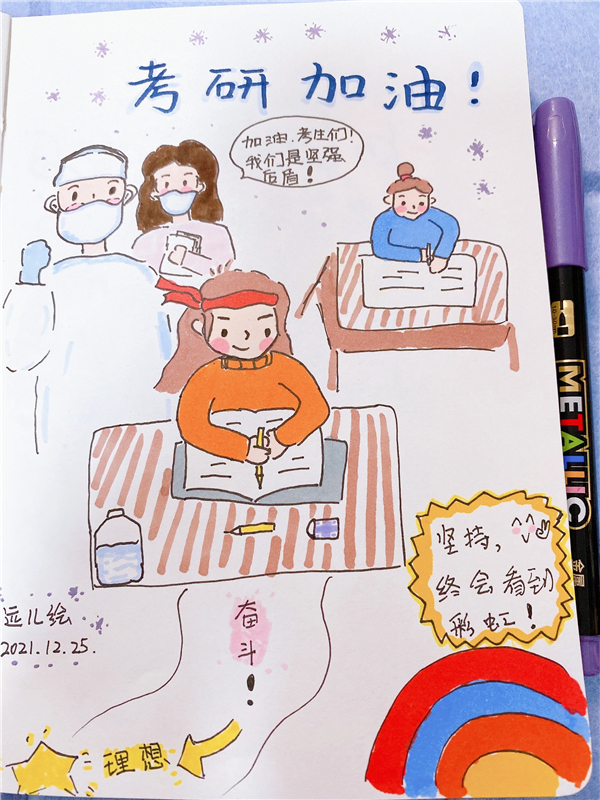 考研加油!
加油,考生们!
我们是坚强
后盾!
METALLIC
金属
坚持,
终会看到
彩虹!
远儿绘
2021.12.25.
奋
斗
!
理想